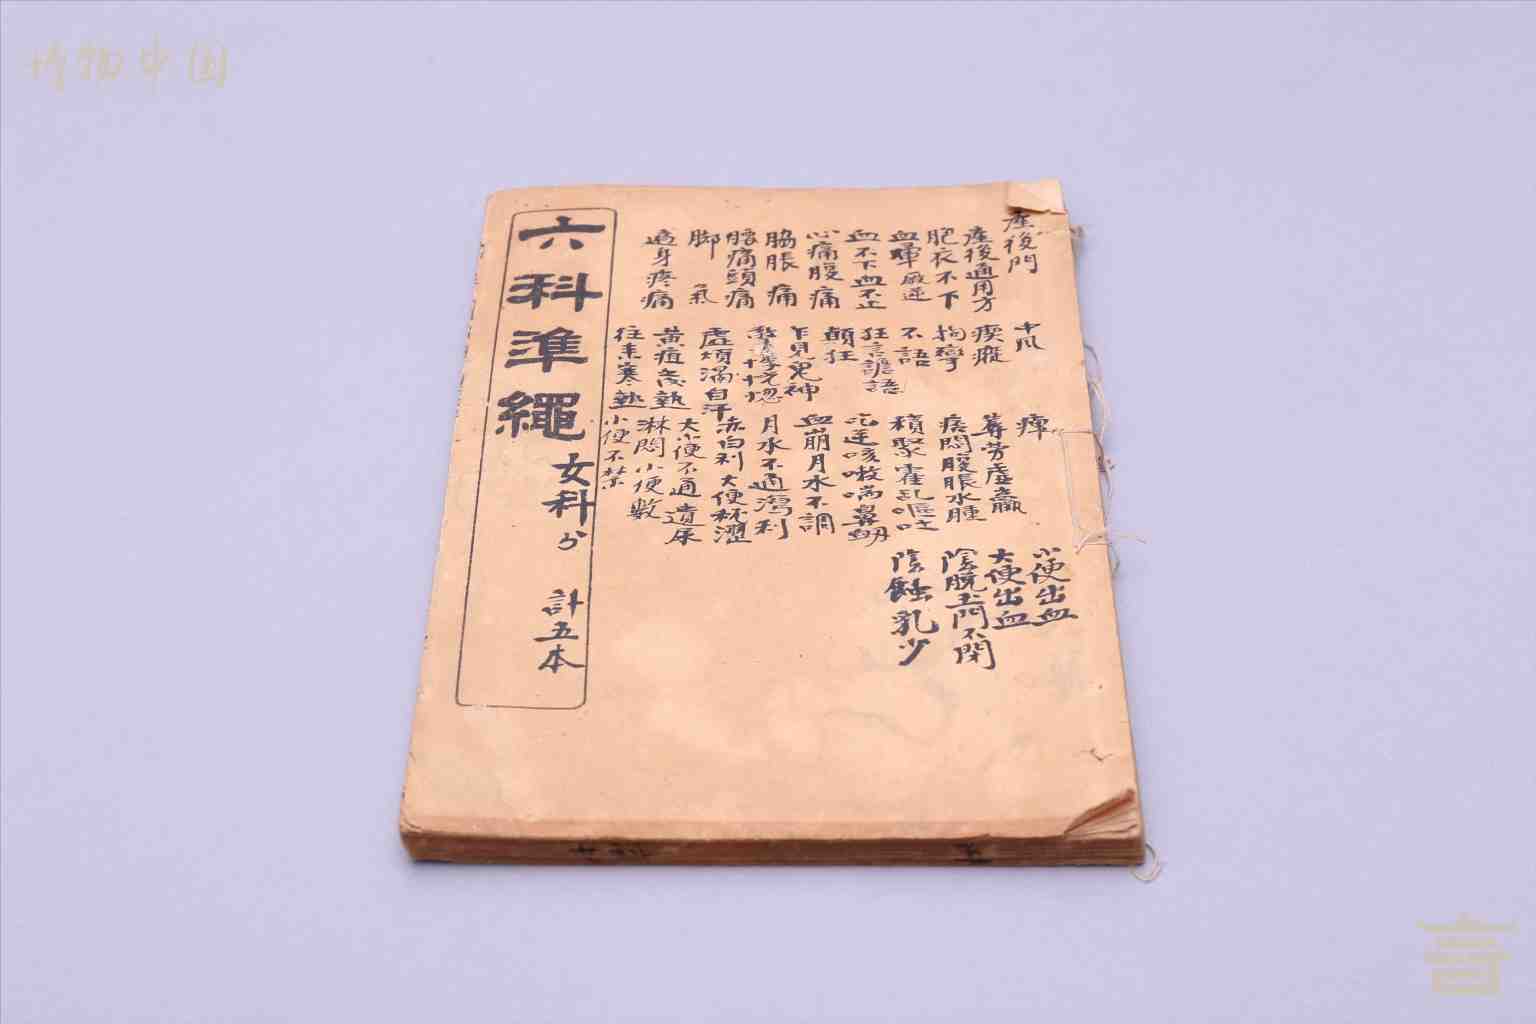 博物中国
產後門
產後通用方
胞衣不下
血暈厥逆
血不下血不止
心痛腹痛
脇脹痛
腰痛頭痛
腳氣
遍身疼痛
中風
瘈瘲
拘攣
不語
狂言譫語
顛狂
乍見鬼神
驚悸恍惚
虛煩渴自汗
黃疸發熱
往來寒熱
痺
蓐勞虛羸
痞悶腹脹水腫
積聚霍乱嘔吐
吃逆咳嗽喘鼻衂
血崩月水不調
月水不通瀉利
赤白利大便秘澀
大小便不通遺尿
淋悶小便數
小便不禁
小便出血
大便出血
陰脫玉門不閉
陰蝕乳少
六科準繩
女科
計五本